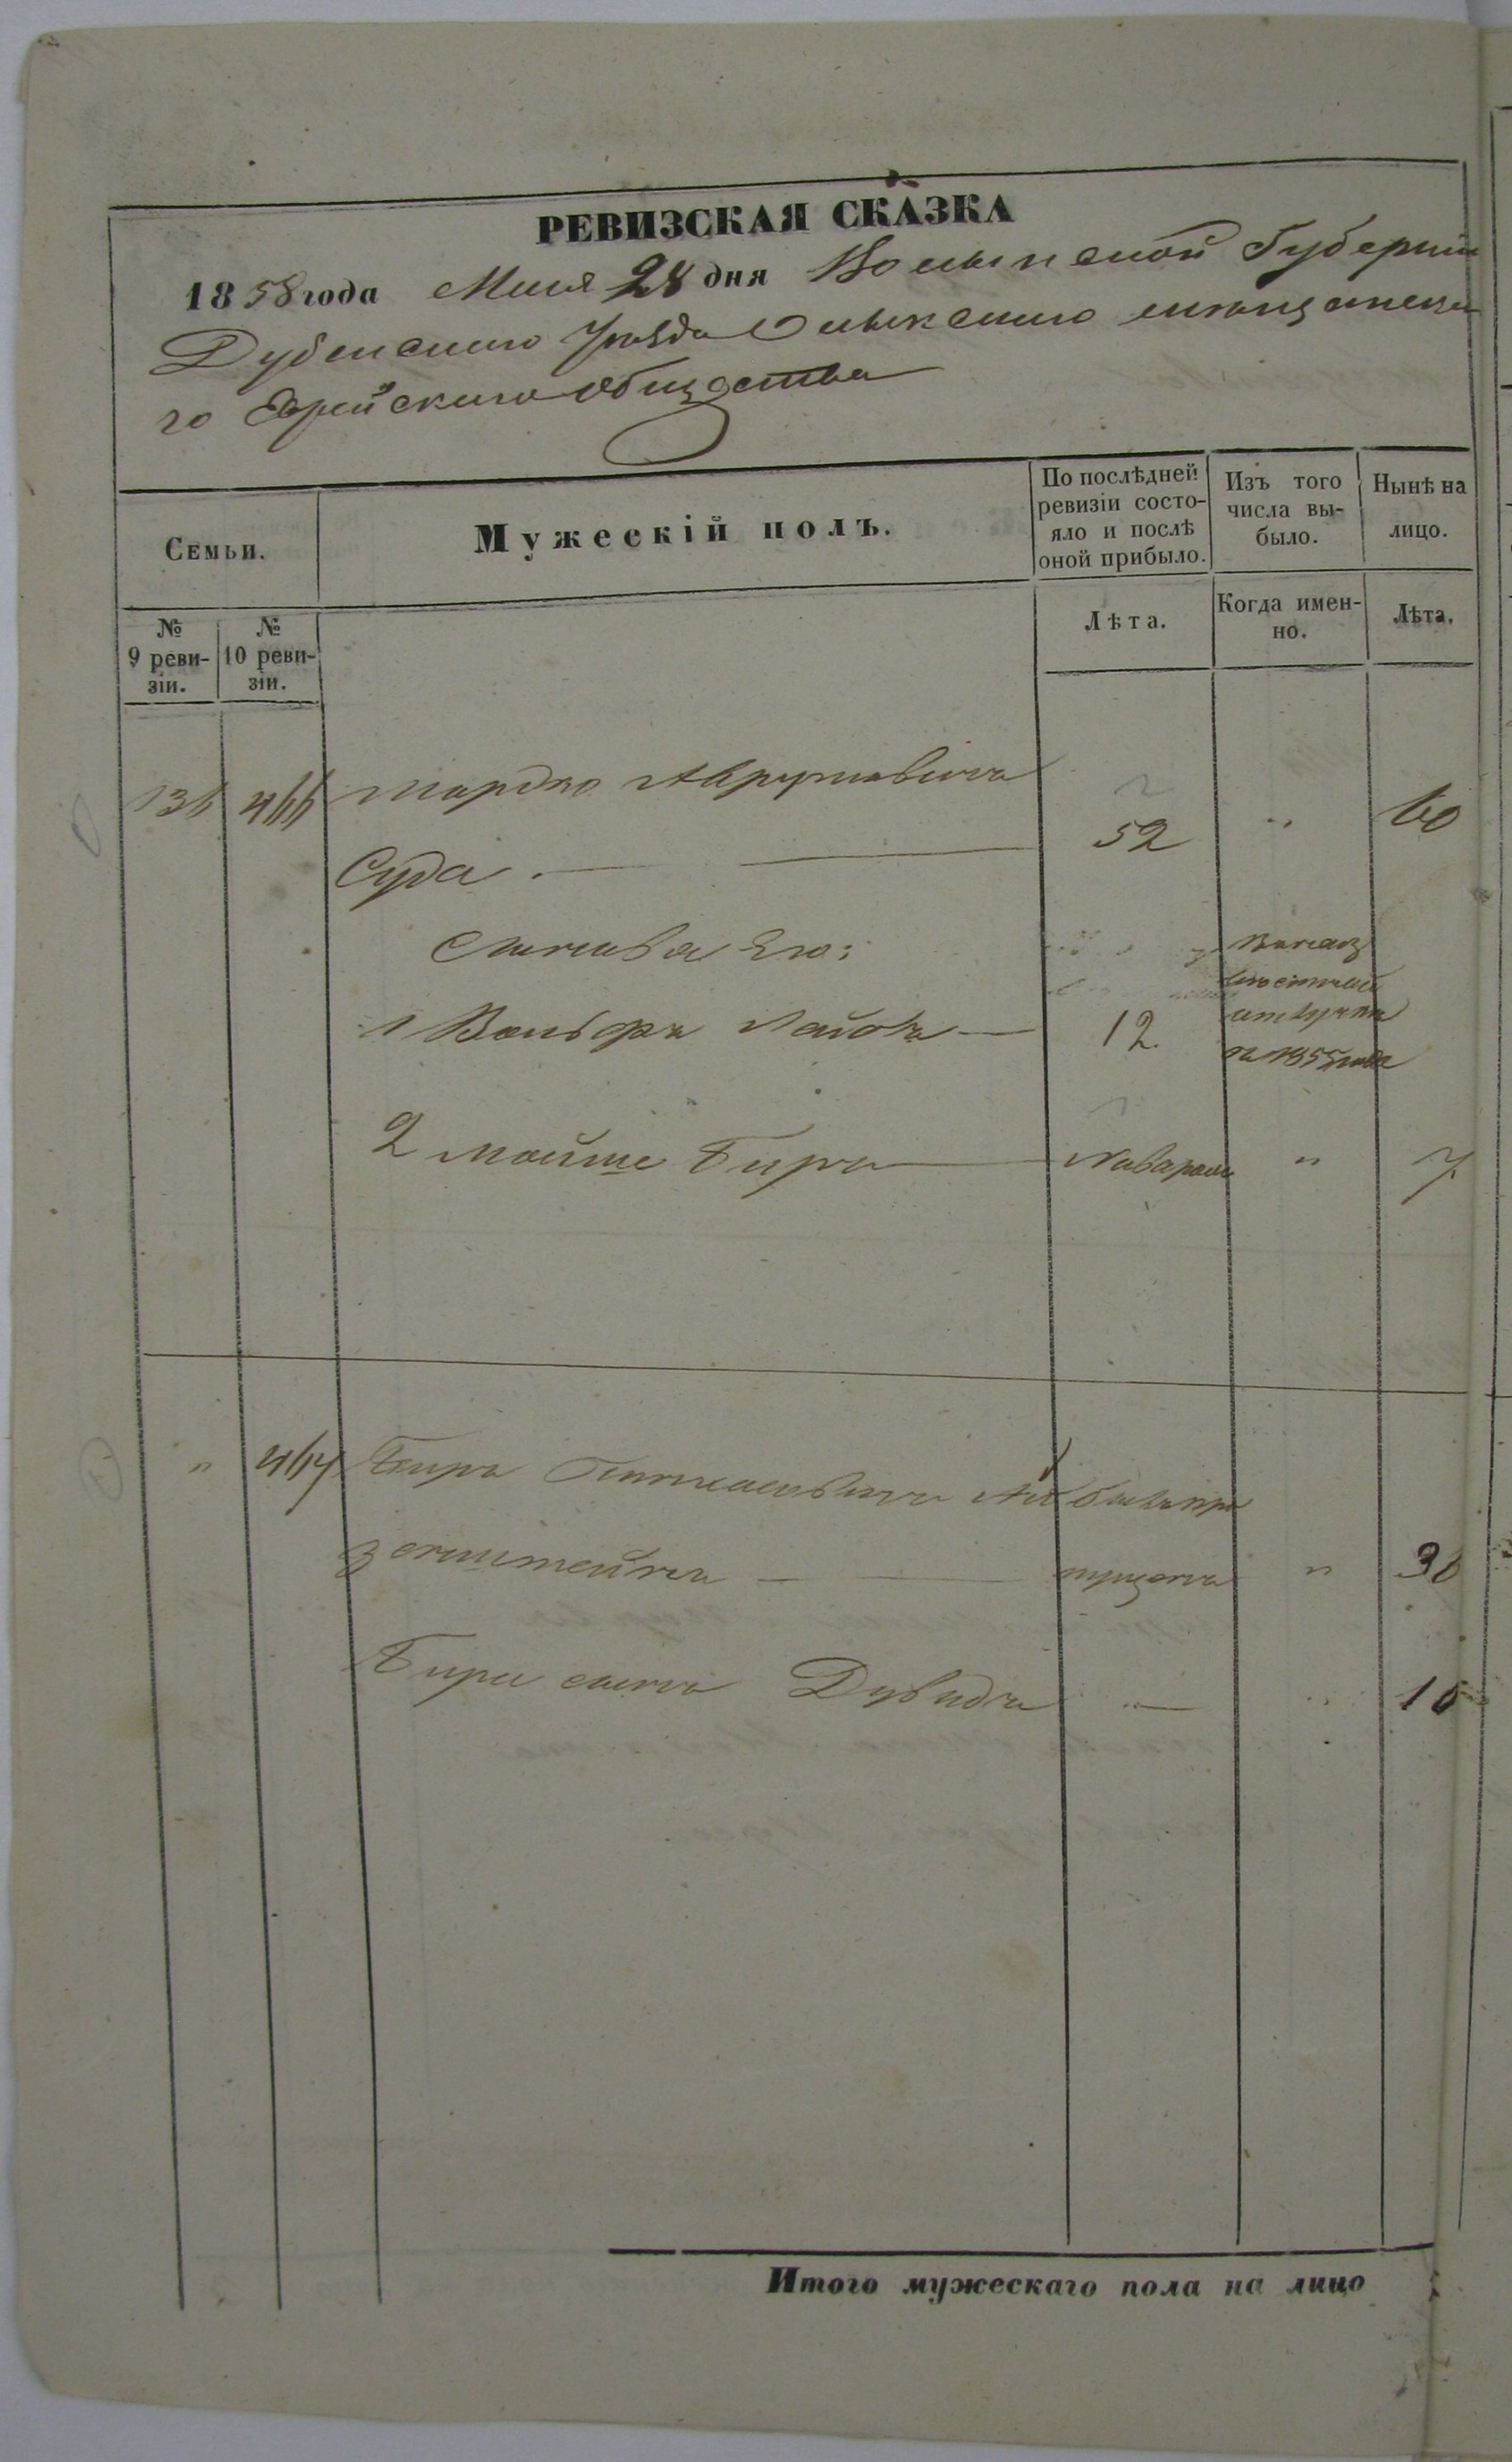 РЕВИЗСКАЯ СКАЗКА
1858 года Мая 28 дня Волынской Губернии
Дубенского Уезда Олыкского мещанска
го Еврейского Общества
Семьи.
Мужескій полъ.
По послѣдней
ревизіи состо-
яло и послѣ
оной прибыло.
Изъ того
числа вы-
было.
Нынѣ на
лицо.
№
9 реви-
зіи.
№
10 реви-
зіи.
Лѣта.
Когда имен-
но.
Лѣта.
136 466 Мордко
52 " 60
Суда
Сыновья Его:
1 Вольфъ Лейбъ 12.
въ 1855 годе
2 Мойше Биръ " 7
" 467 Биръ
зенштейнъ пущенъ " 36
Бира сынъ Дувидъ 16
Итого мужескаго пола на лицо